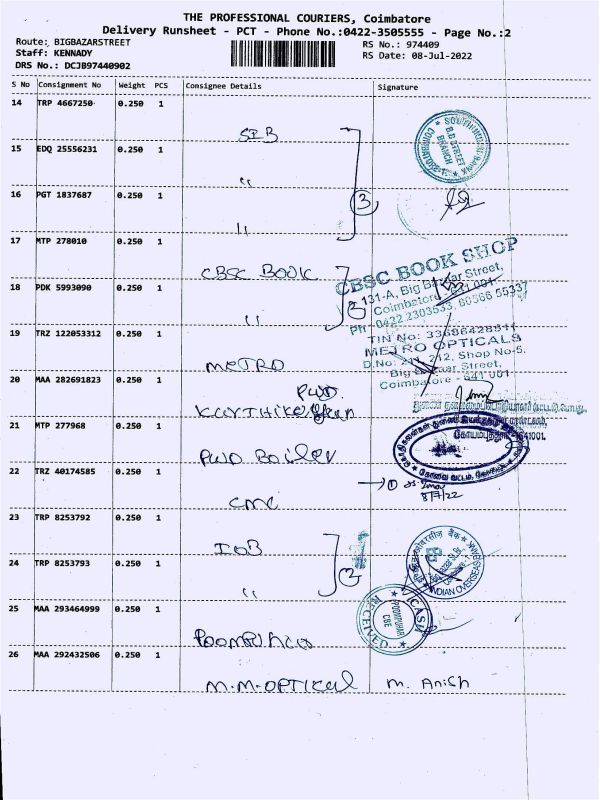 THE PROFESSIONAL COURIERS, Coimbatore
Delivery Runsheet - PCT - Phone No.:0422-3505555 - Page No.:2
Route: BIGBAZARSTREET
RS No.: 974409
Staff: KENNADY
RS Date: 08-Jul-2022
DRS No.: DCJB97440902
S No Consignment No Weight PCS Consignee Details Signature
14 TRP 4667250 0.250 1
SIB
15 EDQ 25556231 0.250 1
"
16 PGT 1837687 0.250 1
3
"
17 MTP 278010 0.250 1
CBSC BOOK
CBSC BOOK SHOP
131-A, Big Bazaar Street,
Coimbatore - 641 001
Ph : 0422 2303533,
18 PDK 5993090 0.250 1
"
2
TIN No: 33686428511
METRO OPTICALS
212, Shop No-5,
Big Bazaar Street,
Coimbatore - 641 001
19 TRZ 122053312 0.250 1
METRO
20 MAA 282691823 0.250 1
PWD.
கோயமுத்தூர் 641001.
21 MTP 277968 0.250 1
PWD Boiler
22 TRZ 40174585 0.250 1
1
8/7/22
CMC
23 TRP 8253792 0.250 1
IOB
24 TRP 8253793 0.250 1
2
INDIAN OVERSEAS BANK
"
25 MAA 293464999 0.250 1
RECEIVED
POOMPUHAR
CBE
26 MAA 292432506 0.250 1
M.M-OPTICAL M. Anish